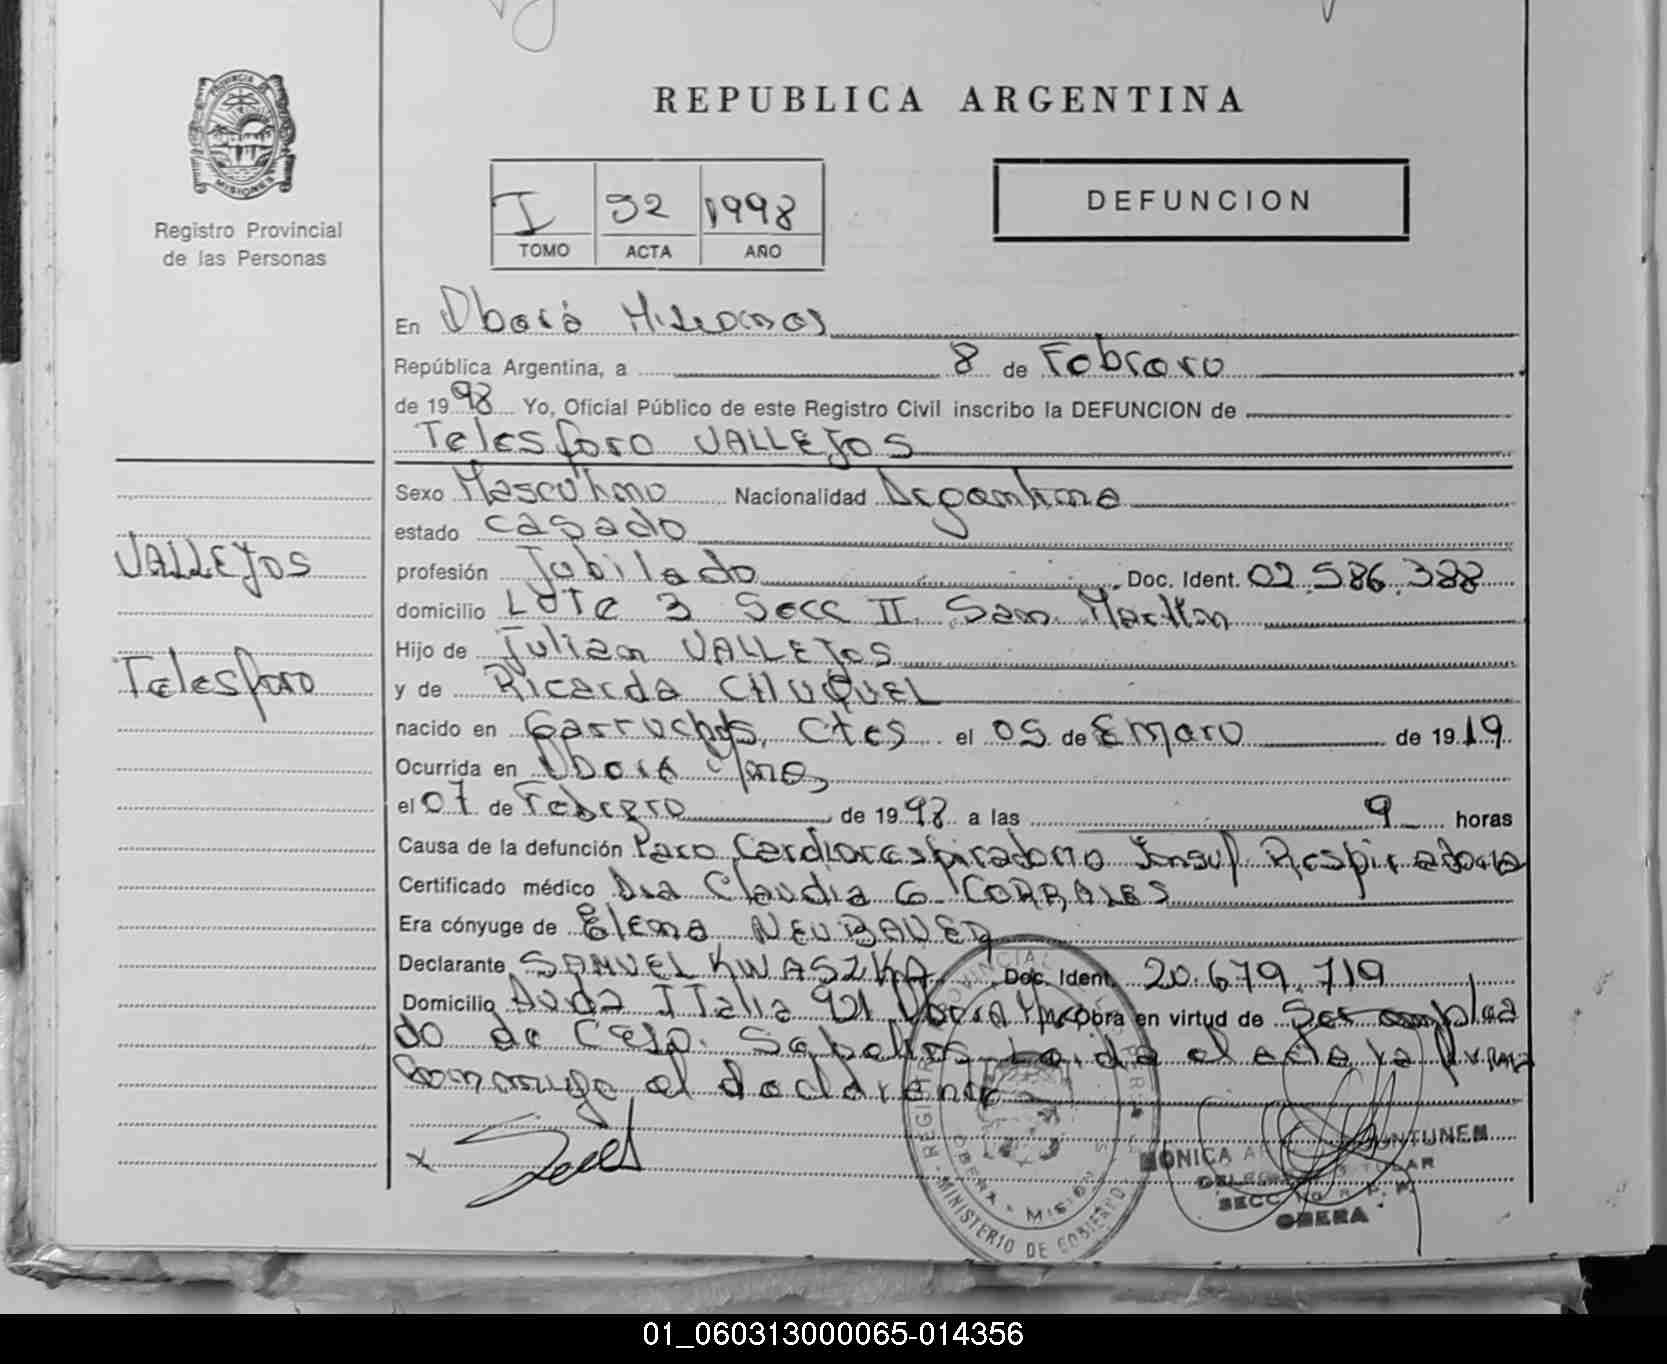 PROVINCIA DE
MISIONES
Registro Provincial
de las Personas
REPUBLICA ARGENTINA
I 52 1998
TOMO ACTA AÑO
DEFUNCION
En Oberá Misiones
República Argentina, a 8 de Febrero
de 1998 Yo, Oficial Público de este Registro Civil inscribo la DEFUNCION de
Telesforo VALLEJOS
Sexo Masculino Nacionalidad Argentina
estado casado
VALLEJOS
profesión Jubilado Doc. Ident. 02.586.388
domicilio Lote 3 Secc II San Martin
Hijo de Julian VALLEJOS
Telesforo
y de Ricarda CHUQUEL
nacido en Garruchos, Ctes el 05 de Enero de 1919
Ocurrida en Oberá Mnes
el 07 de Febrero de 1998 a las 9 horas
Causa de la defunción Paro Cardiorespiratorio Insuf Respiratoria
Certificado médico Dra Claudia G. CORRALES
Era cónyuge de Elena NEUBAUER
Declarante SAMUEL KWASZKA Doc. Ident. 20.679.719
Domicilio Avda Italia 921 Oberá Mnes Obra en virtud de Ser emplea
do de Casa Leida el acta la firma
Conmigo el declarante
x
REGISTRO PROVINCIAL
OBERA - MISIONES
MINISTERIO DE GOBIERNO
MONICA ANTUNEM
TITULAR
OBERA
01_060313000065-014356